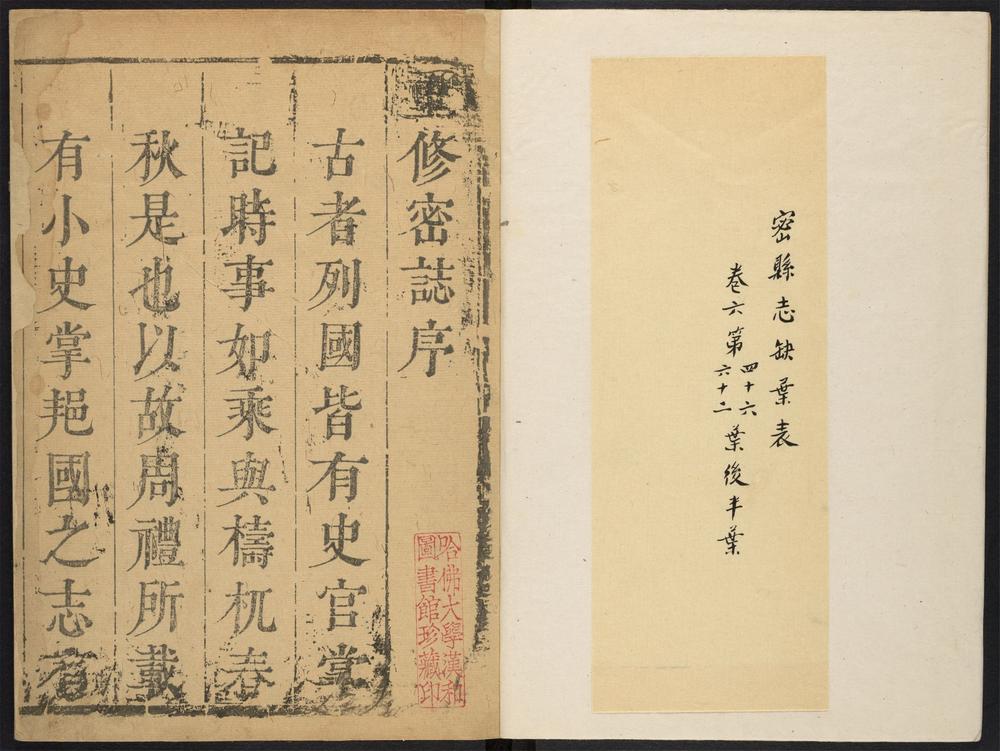 密縣志缺葉表
卷六第四十六六十二葉後半葉
修密誌序
古者列國皆有史官掌
記時事如乘與檮杌春
秋是也以故周禮所載
有小史掌邦國之志
哈佛大學漢和
圖書館珍藏印